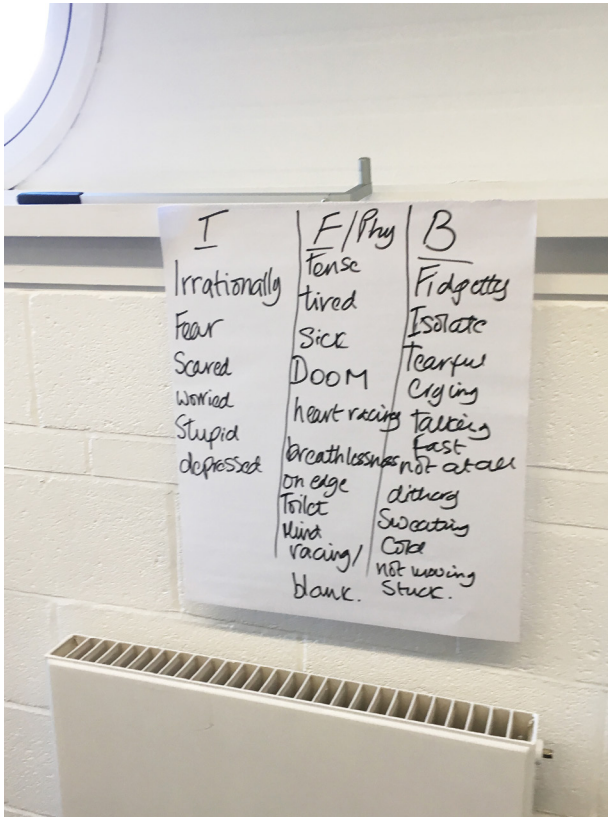 T
Irrationally
Fear
Scared
worried
Stupid
depressed
F/Phy
Tense
tired
Sick
DOOM
heart racing
breathlessness
on edge
Toilet
Mind
racing/
blank.
B
Fidgetty
Isolate
Tearful
Crying
Talking
fast
not at all
Sweating
Cold
not moving
Stuck.